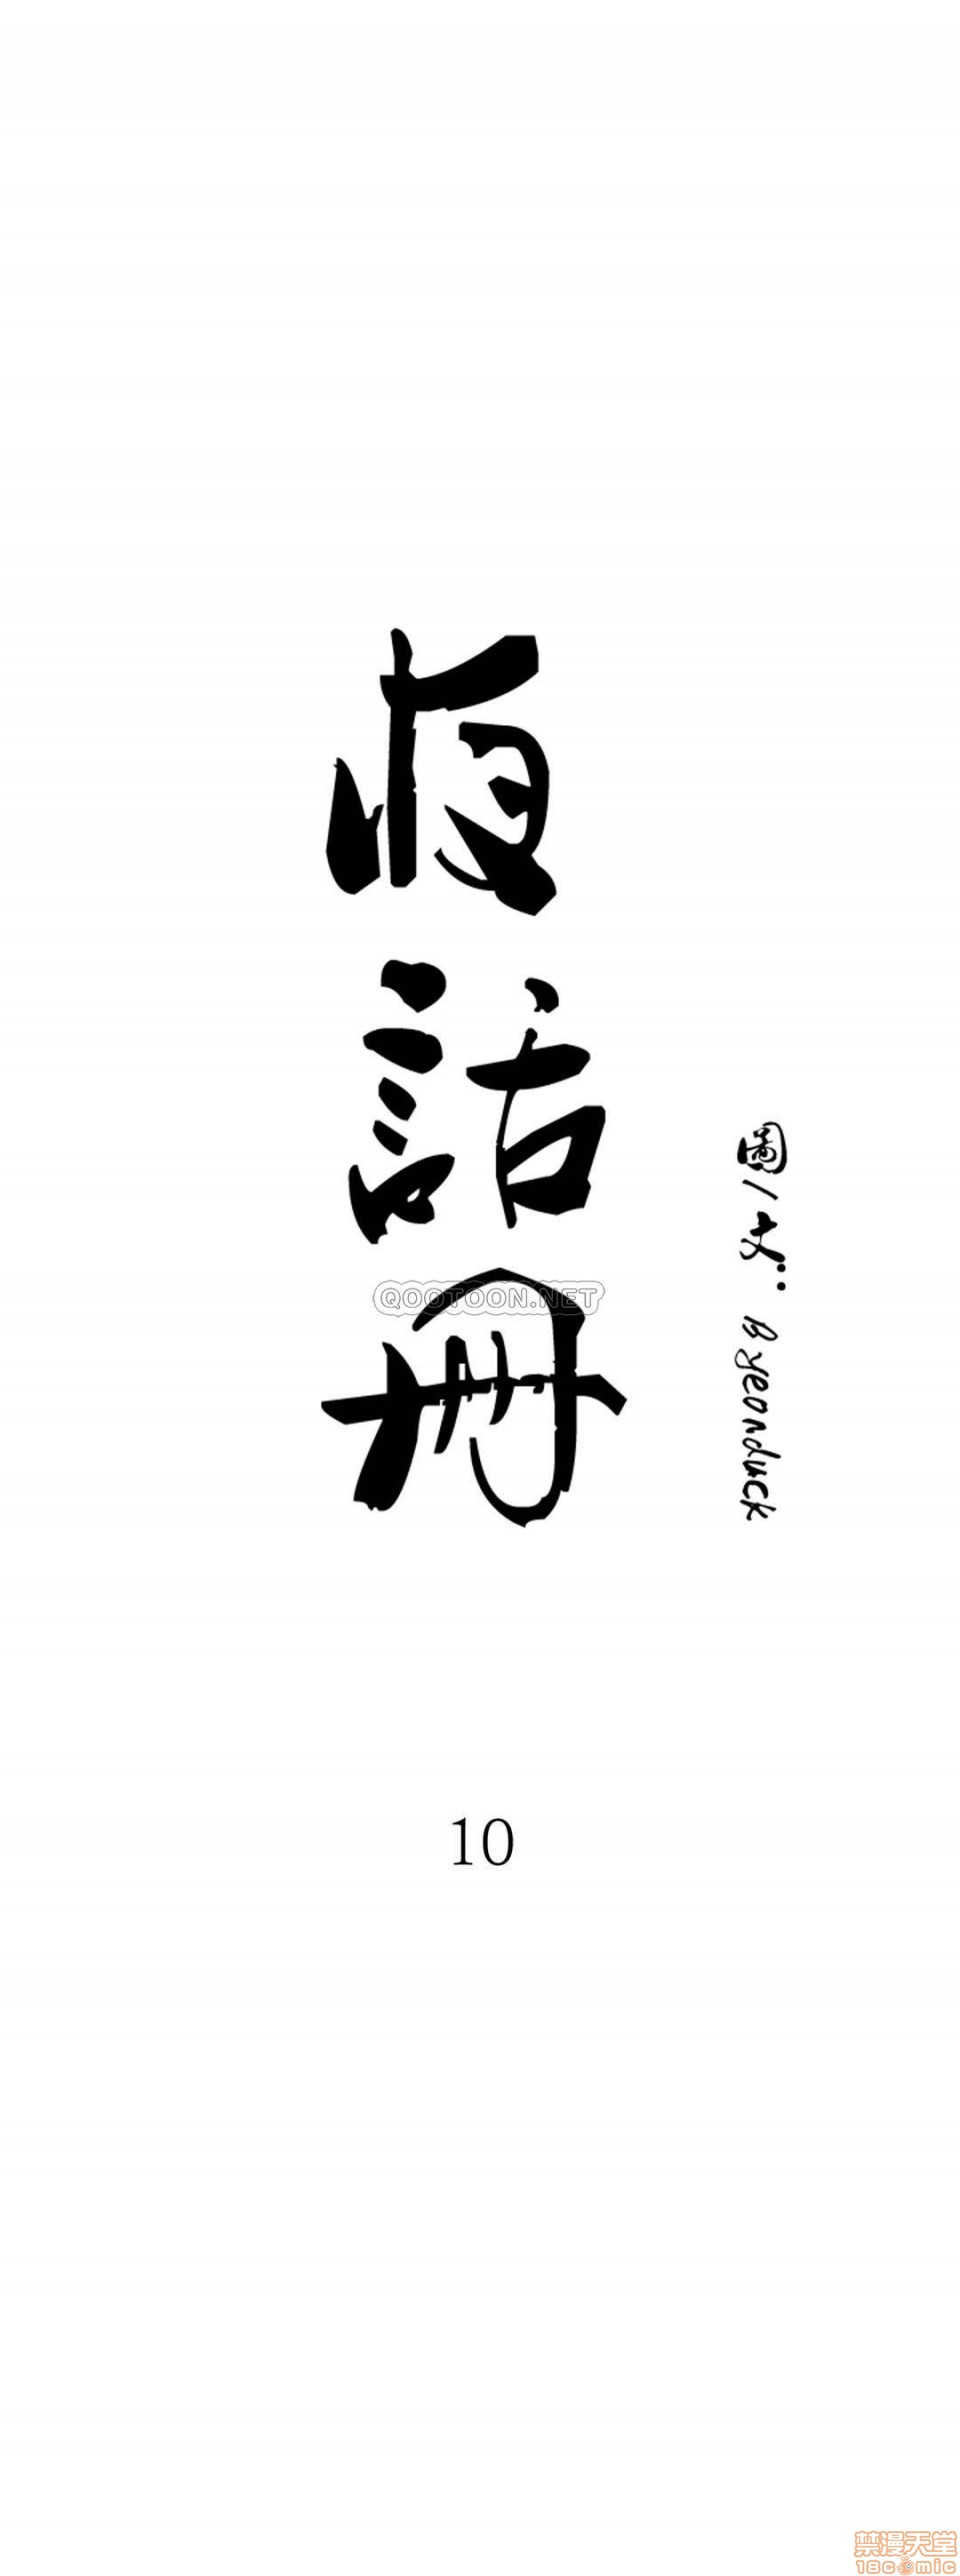 夜話冊
圖/文: Byeonduck
QOOTOON.NET
10
禁漫天堂
18comic